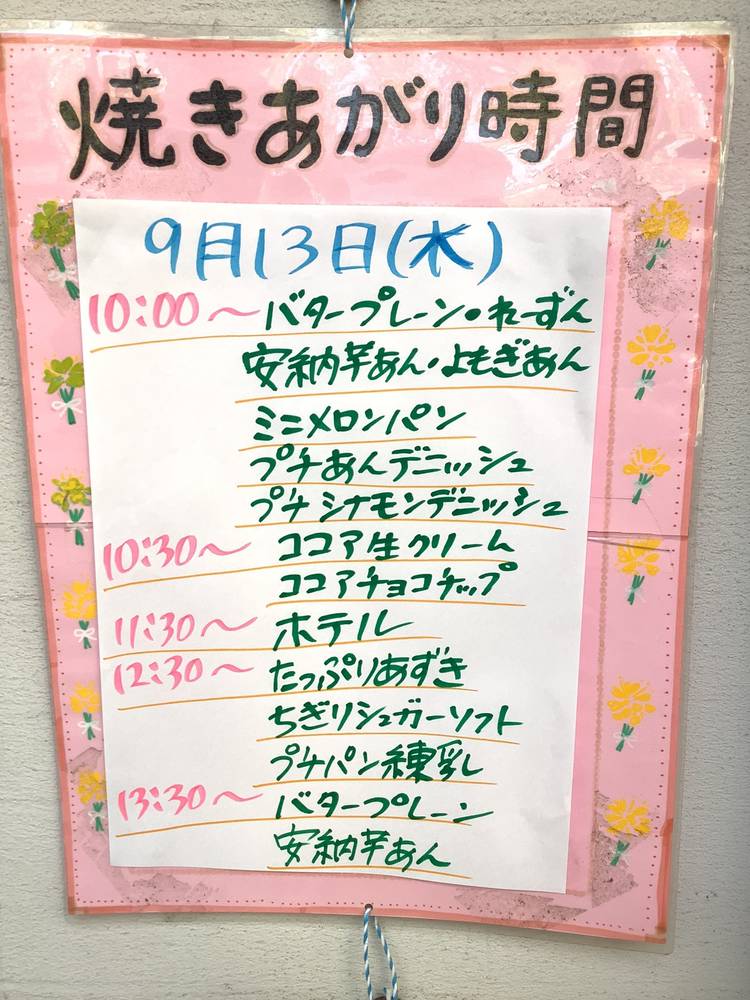 焼きあがり時間
9月13日(水)
10:00〜 バタープレーン・れーずん
安納芋あん・よもぎあん
ミニメロンパン
プチあんデニッシュ
プチシナモンデニッシュ
10:30〜 ココア生クリーム
ココアチョコチップ
11:30〜 ホテル
12:30〜 たっぷりあずき
ちぎりシュガーソフト
プチパン練乳
13:30〜 バタープレーン
安納芋あん